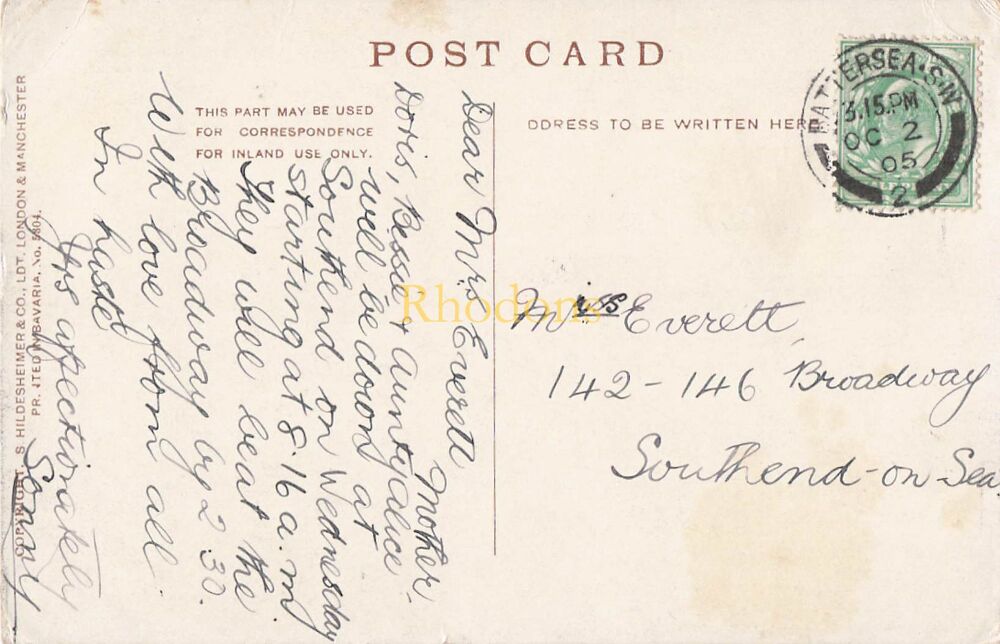 POST CARD
THIS PART MAY BE USED
FOR CORRESPONDENCE
FOR INLAND USE ONLY.
DDRESS TO BE WRITTEN HERE
BATTERSEA·S.W
3.15.PM
OC 2
05
2
Dear Mrs Everett
Mother
Doris, Bessie & Aunty Alice
will be down at
Southend on Wednesday
starting at 8.16 a.m
They will be at the
Broadway by 2 30.
With love from all
In haste
Yrs affectionately
Sonny
Miss Everett
142-146 Broadway
Southend-on-Sea
COPYRIGHT, S HILDESHEIMER & CO., LDT. LONDON & MANCHESTER
PRINTED IN BAVARIA, No. 5304.
Rhodons